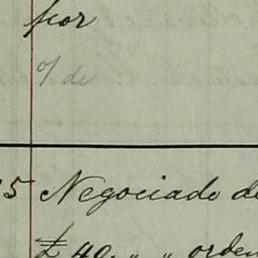 por
o/ de
25 Negociado de
£ 40, " " orden